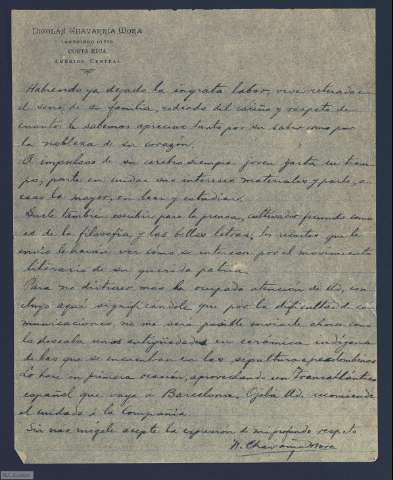 NICOLÁS CHAVARRÍA MORA
COSTA RICA
AMÉRICA CENTRAL
Habiendo ya dejado la ingrata labor, vive retirado en
el seno de su familia, rodeado del cariño y respeto de
cuantos le sabemos apreciar tanto por su saber como por
la nobleza de su corazón.
A impulsos de su cerebro siempre joven gasta su tiem-
po, parte en cuidar sus intereses materiales y parte, a-
caso la mayor, en leer y estudiar.
Suele también escribir para la prensa, cultivador fecundo como
es de la filosofía y las bellas letras; los recortes que le
envío le harán ver como se interesa por el movimiento
literario de su querida patria.
Para no distraer mas la ocupada atención de Ud, con-
cluyo aquí significándole que por la dificultad de co-
municaciones, no me será posible enviarle ahora como
lo deseaba unas antigüedades en cerámica indígena
de las que se encuentran en las sepulturas precolombinas
Lo haré en primera ocasión, aprovechando un Transatlántico
español que vaya a Barcelona. Ojalá Ud.
el cuidado a la Compañía.
Sin mas acepte la expresión de mi profundo respeto
N. Chavarría Mora